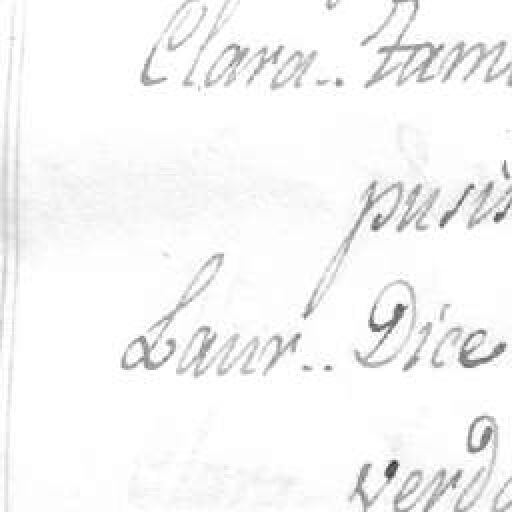 Clara.. Tam
pusis
Laur.. Dice
verd